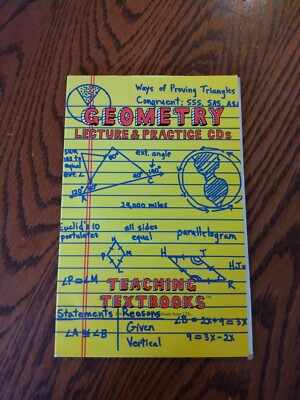 Ways of Proving Triangles
Congruent: SSS, SAS, ASA
GEOMETRY
LECTURE & PRACTICE CDs
sum
has to
equal
ext. ∠
80°
ext. angle
60°
140°
120°
A
C
24,000 miles
Euclid's 10
postulates
all sides
equal
parallelogram
M
M
P
H
J
R
HJ=
∠P=∠M
TEACHING
TEXTBOOKS™
Statements
Reasons
∠A≅∠B
Given
Vertical
∠B=2x+9=3x
9=3x-2x